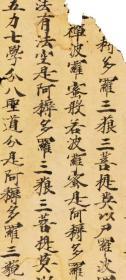 耨多羅三藐三菩提莫以尸羅波
禪波羅蜜般若波羅蜜是阿耨多羅
法有法空是阿耨多羅三藐三菩提莫以
五力七覺分八聖道分是阿耨多羅三藐